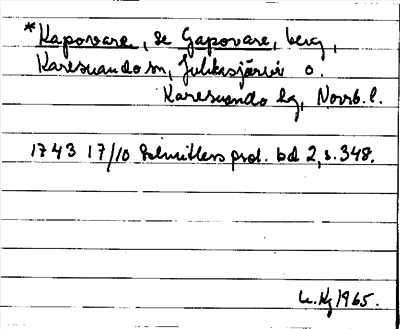 *Kaporare, se Gaporare, berg,
Karesuando sn, Jukkasjärvi o.
Karesuando hg, Norrb. l.
1743 17/10 Schnitlers prot. bd 2, s. 348.
1965.